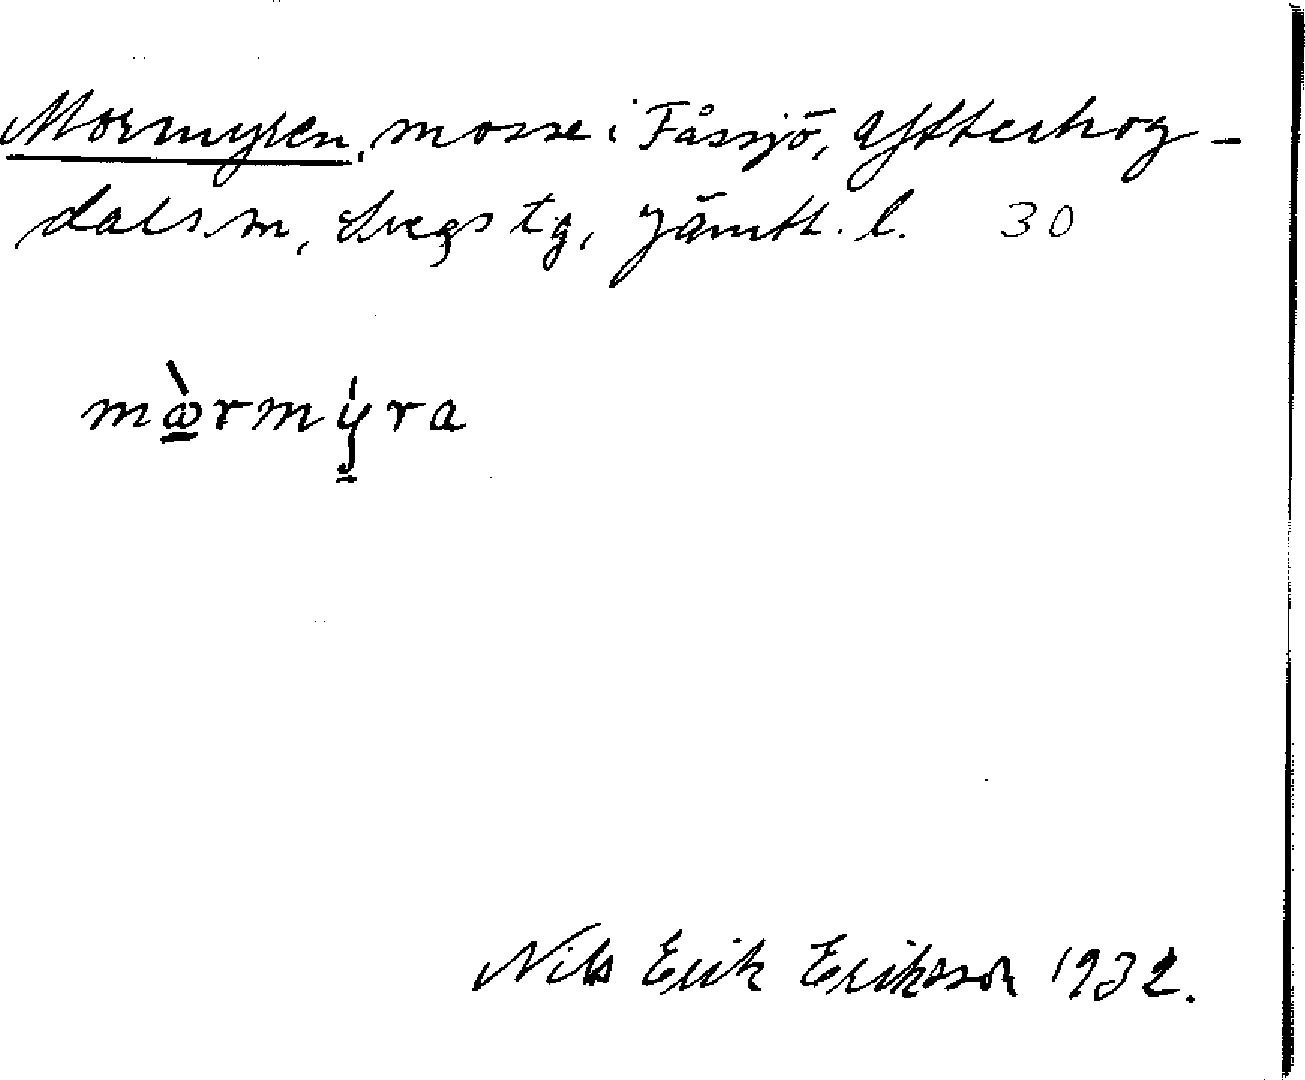 Mormyren, mosse i Fåssjö, Ytterhog-
dals sn, Svegs tg, Jämtl. l. 30
mὼ̱rmý̱ra
Nils Erik Eriksson 1932.